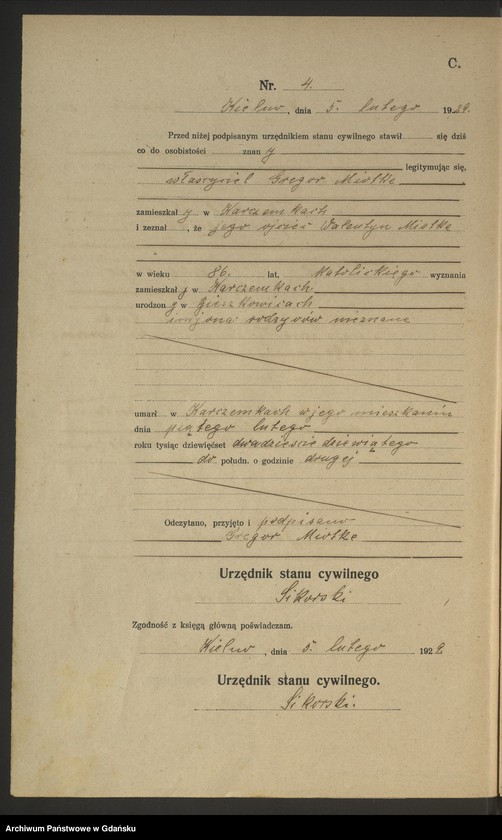 C.
Nr. 4.
Kielno, dnia 5. lutego 1929.
Przed niżej podpisanym urzędnikiem stanu cywilnego stawił się dziś
co do osobistości znany
legitymując się,
właściciel Gregor Miotke
zamieszkały w Karczemkach
i zeznał, że jego ojciec Valentyn Miotke
w wieku 86. lat, katolickiego wyznania
zamieszkały w Karczemkach
urodzony w Bieszkowicach
imiona rodzyców nieznane
umarł w Karczemkach w jego mieszkaniu
dnia piątego lutego
roku tysiąc dziewięćset dwadzieście dziewiątego
do połudn. o godzinie drugej
Odczytano, przyjęto i podpisano
Gregor Miotke
Urzędnik stanu cywilnego
Sikorski
Zgodność z księgą główną poświadczam.
Kielno, dnia 5. lutego 1929.
Urzędnik stanu cywilnego.
Sikorski.
Archiwum Państwowe w Gdańsku